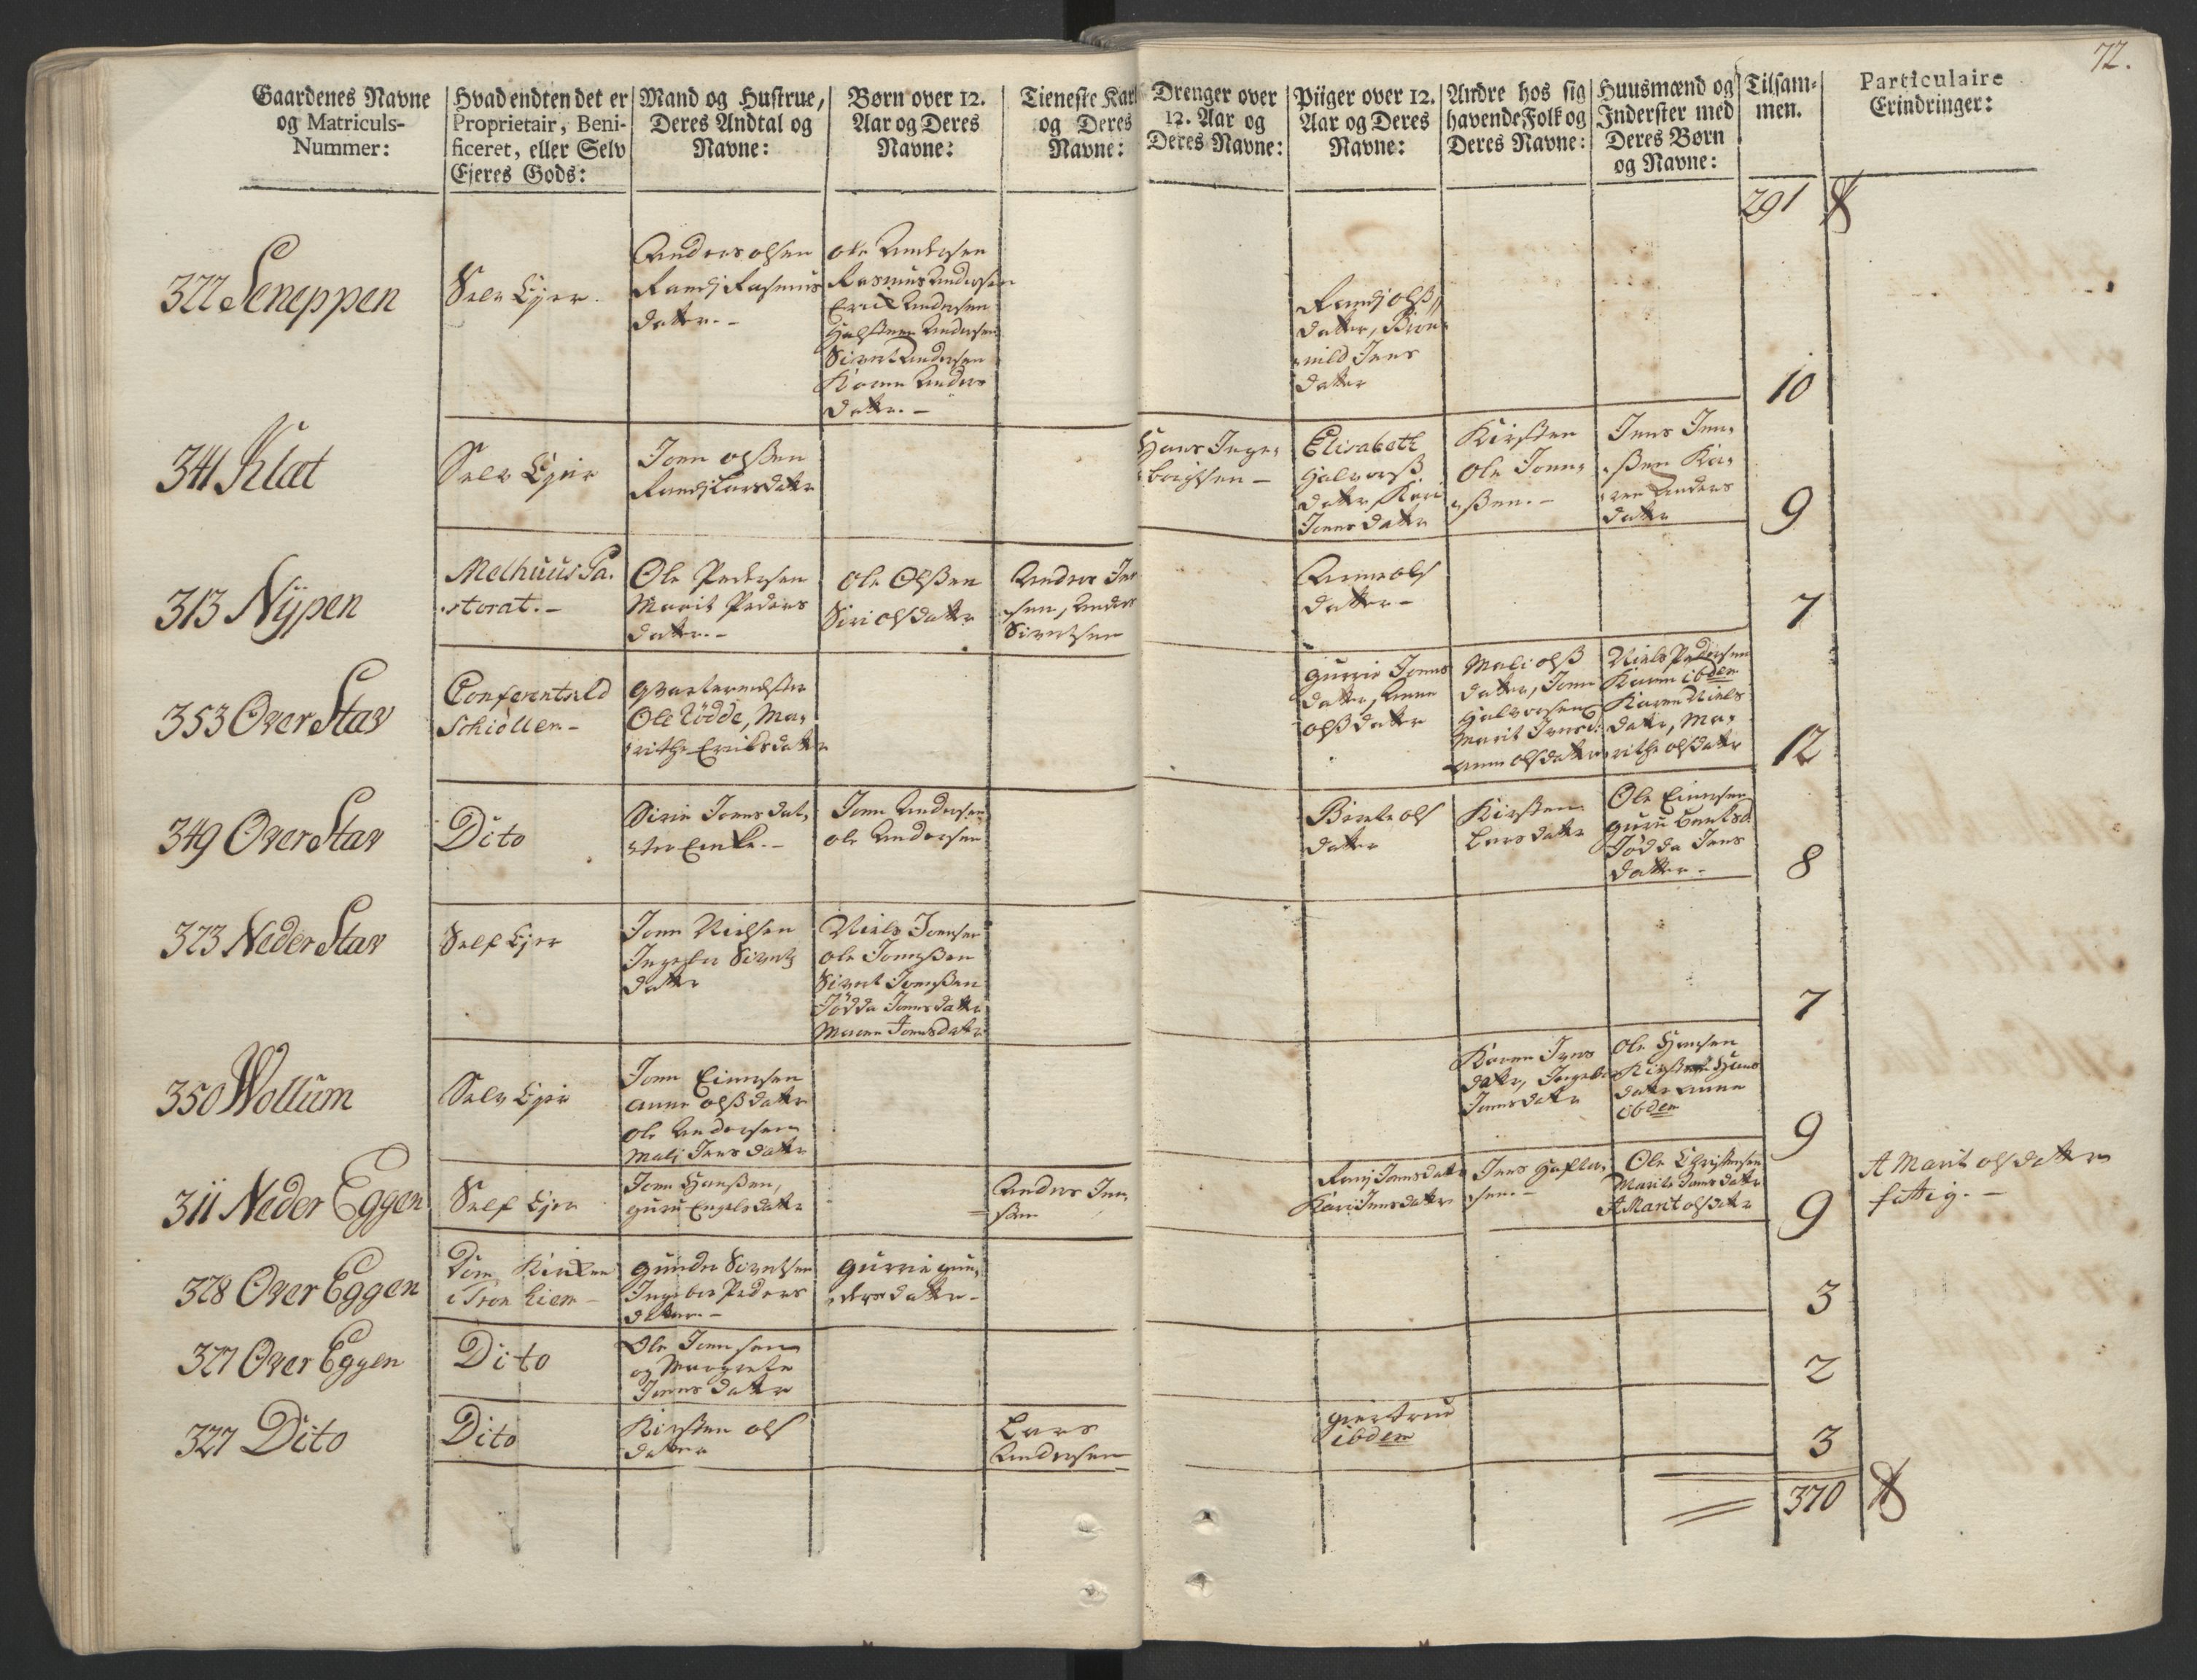 72.
Gaardenes Navne
og Matriculs-
Nummer:
Hvad endten det er
Proprietair, Beni-
ficeret, eller Selv
Ejeres Gods:
Mand og Hustrue,
Deres Andtal og
Navne:
Børn over 12.
Aar og Deres
Navne:
Tieneste Karl
og Deres
Navne:
Drenger over
12. Aar og
Deres Navne:
Piiger over 12.
Aar og Deres
Navne:
Andre hos sig
havende Folk og
Deres Navne:
Huusmænd og
Inderster med
Deres Børn
og Navne:
Tilsam-
men.
Particulaire
Erindringer:
291
322 Leneppen
Selv Ejer.
Anders olsen
Randj Rasmus
datter.-
ole Andersen
Rasmus Andersen
Erick Andersen
Halsteen Andersen
Sivert Andersen
Karen Anders
datter.-
Randj olß
datter,
Jens
datter
10
341 Klæt
Selv Ejer
Joen olßen
Randj Larsdatter
Hans Inge-
brigtsen -
Elisabeth
Halvorß
datter, Kari
Joensdatter
Kirsten
Ole Joen-
ßen.-
Jens Jen-
ßen Ka-
ren Anders
datter
9
313 Nÿpen
Melhuus Pa-
storat.-
Ole Pedersen
Marit Peders
datter.-
Ole Olßen
Siri olsdatter
Anders Jen
sen, Anders
Sivertsen
Anne ols
datter-
7
353 Over Stav
Conferentsrd
Schiöller-
Qvartermester
Ole Rødde, Ma-
rithe Eriksdatter
Gurrie Joens
datter, Anne
olßdatter
Mali olß
datter, Joen
Halvorsen
Marit Jensd:
Anne olsdatter
Niels Pedersen
Karen ibdem
Karen Niels
datter, Ma-
rithe olsdatter
12
349 Over Stav
Dito
Siri Joensdat-
ter Enke.-
Joen Andersen
ole Andersen
Berete ols
datter
Kirsten
Larsdatter
Ole Einersen
Guru Bentsd.
Jødda Jens
datter.-
8
323 Neder Stav
Self Ejer
Joen Nielsen
Ingeber Siverts
datter
Niels Joensen
ole Joensen
Sivert Joensen
Jødda Joensdatter
Maren Joensdatter
7
350 Wollum
Selv Ejer
Joen Einersen
Anne olßdatter
Ole Andersen
Mali Jensdatter
Karen Jens
datter, Ingeber
Joensdatter
Ole Hansen
Kirsten Hans
datter Anne
ibdem
9
311 Neder Eggen
Self Ejer
Joen Hanßen,
Guru Engelsdatter
Anders Jen-
sen
Ranj Joensdatter
Kari Jensdatter
Jens
sen.-
Ole Christensen
Marit Joensdatter
A Marit olsdatter
9
A Marit olsdatter
fattig.-
328 Over Eggen
Dom Kirken
i Tronhiem -
Gunder Sivertsen
Ingeber Peders
datter.-
Gurrie Gun-
dersdatter.
3
327 Over Eggen
Dito
Ole Joensen
og Margrete
Joensdatter
2
327 Dito
Dito
Kirsten ols
datter
Lars
Andersen
Giertrud
ibdem
3
370